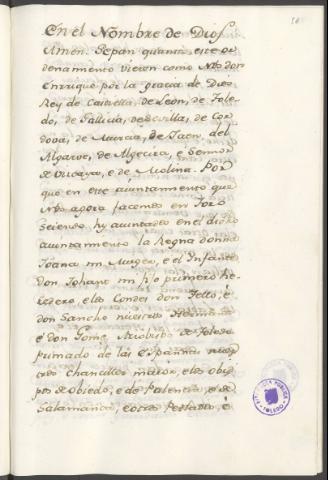 En el Nombre de Dios
Amen. Sepan quantos este or
denamiento vieren como Nos don
Enrrique por la gracia de Dios
Rey de Castiella, de Leon, de Tole-
do, de Gallicia, de Sevilla, de Cor
dova, de Murcia, de Jaen, del
Algarve, de Algecira, e Sennor
de Vizcaya, e de Molina. Por
que en este ayuntamiento que
Nos agora facemos en Toro
Seiendo hy ayuntados en el dicho
ayuntamiento la Regna donna
Joana mi Muger, e el Infante
don Johan mi fijo primero he-
redero, e los Condes don Tello, é
don Sancho nuestros Hermanos
é don Gome Arzobispo de Toledo
primado de las Españas nues-
tro Chanciller mayor, e los obis
pos de Obiedo, e de Palencia, e de
Salamanca, e otros Perlados, é